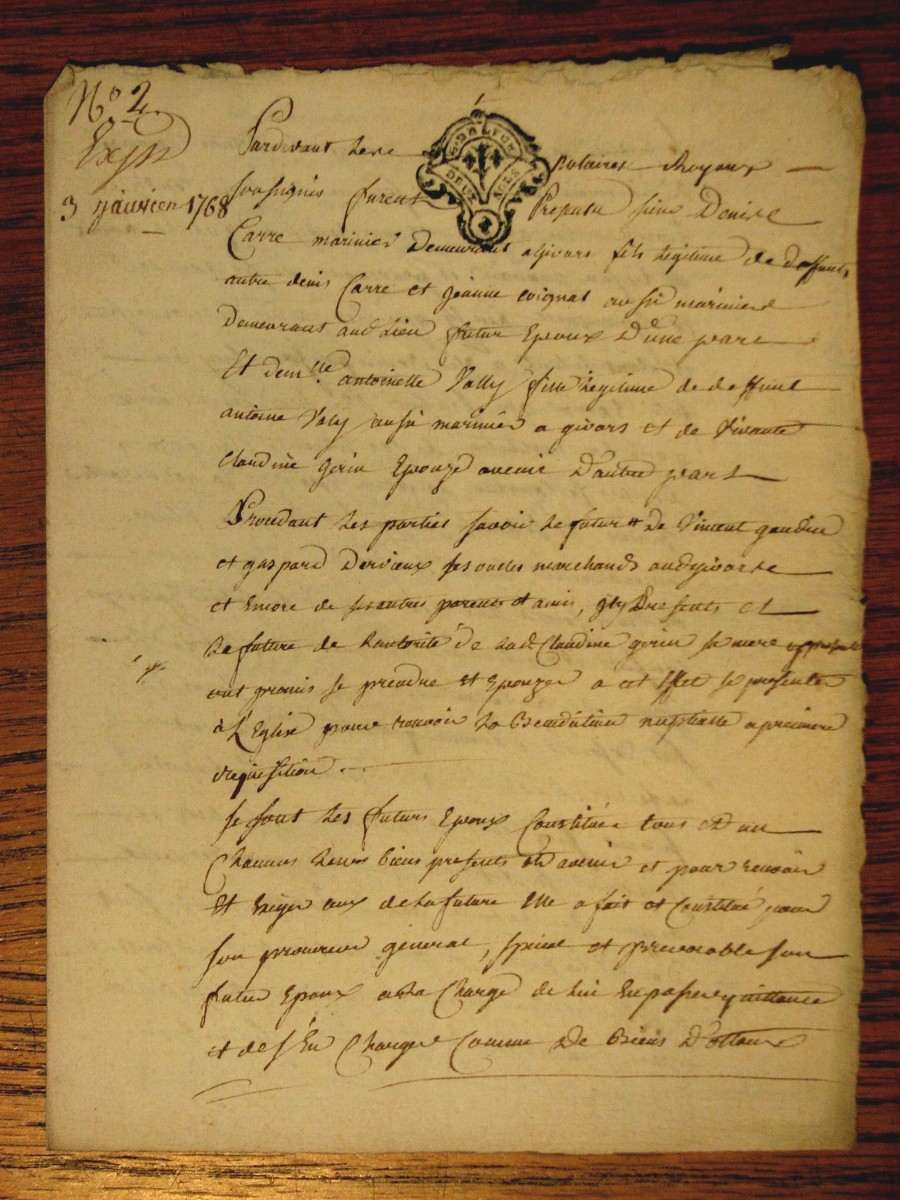 N° 2
Exp
3 janvier 1768
G. D. LYON
DEUX
Pardevant Les Notaires Royaux
soussignés furent Presents sieur Denis
Carre marinier Demeurant a Givors fils Legitime de deffunts
autre denis Carre et jeanne coignat aussi marinier
Demeurant aud. Lieu futur Epoux D'une part
Et demlle antoinette Vally fille Legitime de deffunt
antoine Valy aussi marinier a givors et de Vivante
Claudine gorin Epouze avenir D'autre part
Procedant Les parties savoir Le futur de Vincent gaudin
et gaspard Dervieux ses oncles marchands aud givors
et Encore de ses autres parents et amis, icy Presents et
La future de Lautorité de Lad. Claudine gorin sa mere
ont promis se prendre Et Epouzer a cet Effet se presenter
à L'Eglise pour recevoir La Benediction nuptialle a premiere
requisition.
se sont Les futurs Epoux Constitués tous et un
Chacuns Leurs biens presents et avenir et pour recevoir
Et Exiger ceux de La future Elle a fait et Constitué pour
son procureur general, special et irrevocable son
futur Epoux a La Charge de Lui En passer quittance
et de s'En Charger Comme De Biens Dottaux